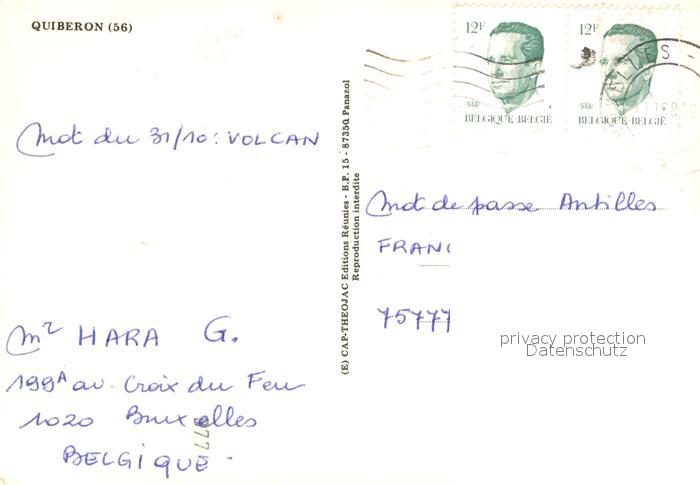 QUIBERON (56)
12F
BELGIQUE-BELGIË
12F
BELGIQUE-BELGIË
Mot du 31/10: VOLCAN
(E) CAP-THEOJAC Editions Réunies - B.P. 15 - 87350 Panazol
Reproduction interdite
Mot de passe Antilles
FRANC
75777
privacy protection
Datenschutz
Mr HARA G.
199A av. Croix du Feu
1020 Bruxelles
BELGIQUE.